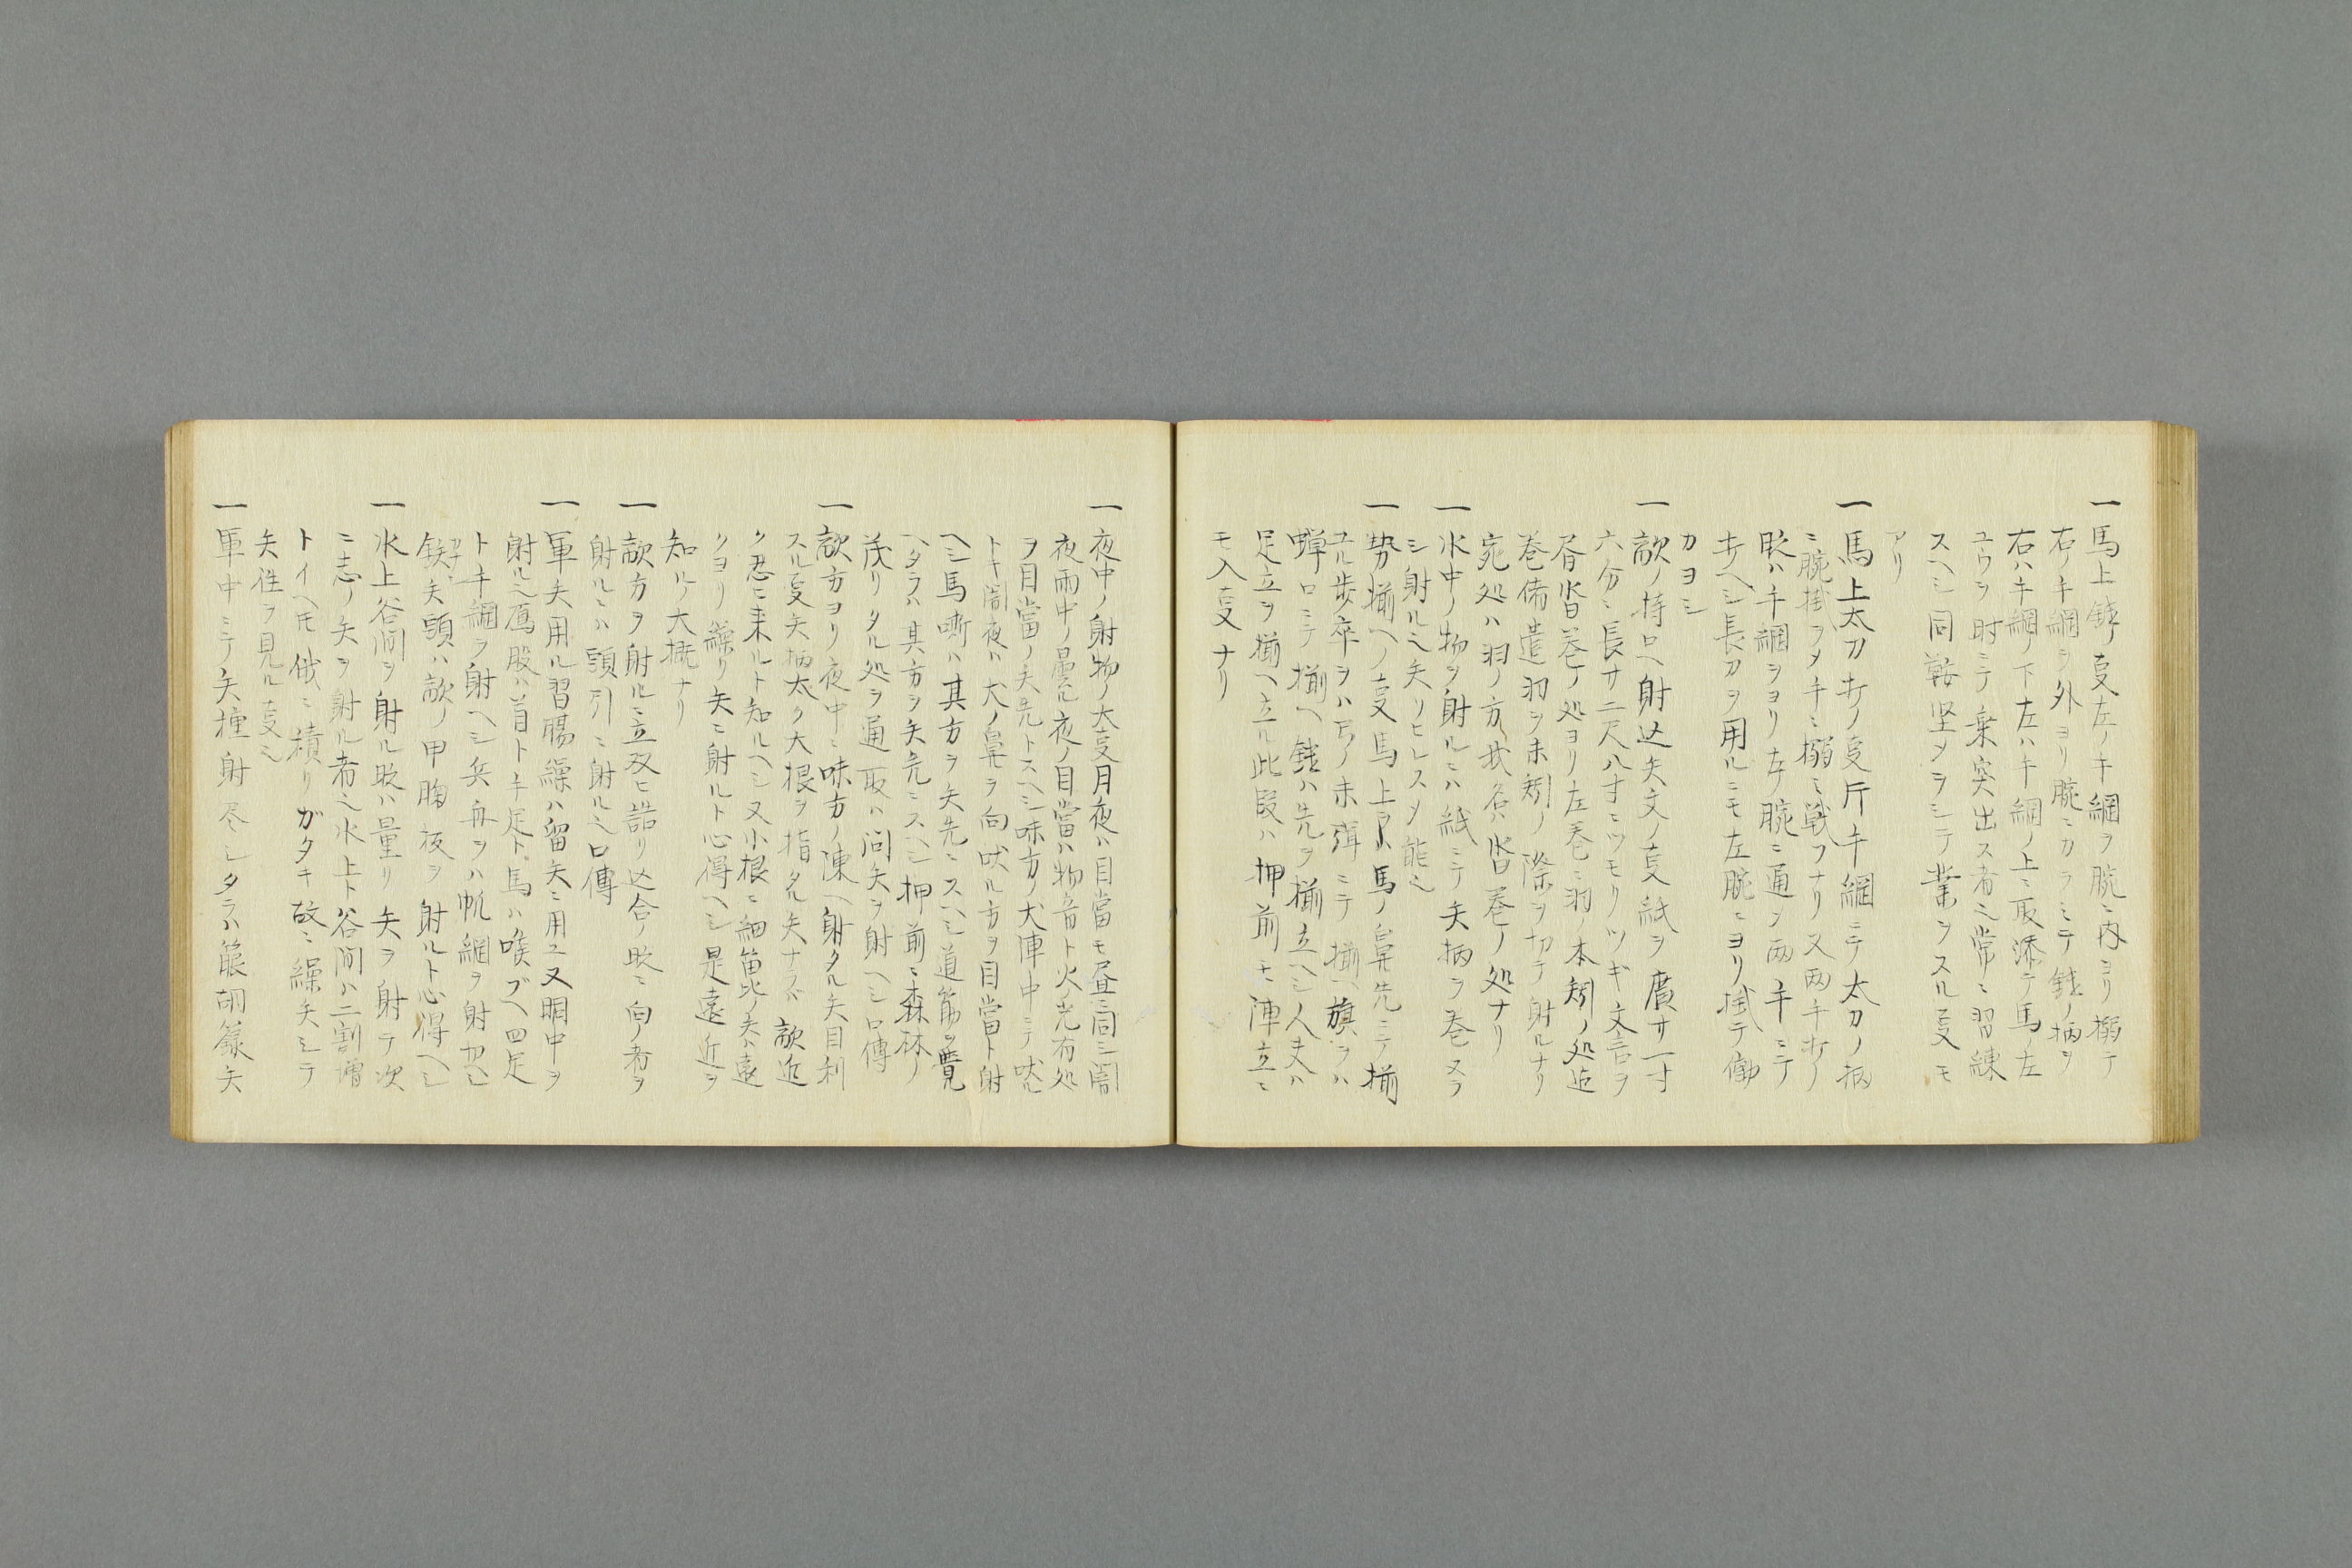 一馬上鎗ノ叓左ノ手綱ヲ腕ニ内ヨリ搦テ
右ノ手綱ヲ外ヨリ腕ニカラミテ鎗ノ柄ヲ
右ハ手綱ノ下左ハ手綱ノ上ニ取添テ馬ノ左
ユウヲ時ニテ乗突出ス者也常ニ習練
スヘシ同鞍堅メヲシテ業ヲスル叓モ
アリ
一馬上太刀打ノ叓片手綱ニテ太刀ノ柄
ニ腕掛ヲメ手ニ搦ミ戦フナリ又両手打ノ
時ハ手綱ヲヨリ左右ノ腕ニ通ヲ両手ニテ
打ヘシ長刀ヲ用ルニモ左腕ニヨリ掛テ働
カヨシ
一敵ノ持口ヘ射込矢文ノ叓紙ヲ廣サ一寸
六分ニ長サ二尺八寸ニツモリツギ文言ヲ
書沓巻ノ処ヨリ左巻ニ羽ノ本矧ノ処迄
巻備遣羽ヲ末矧ノ際ヲ切テ射ルナリ
宛処ハ羽ノ方我名ハ沓巻ノ処ナリ
一水中ノ物ヲ射ルニハ紙ニテ矢柄ヲ巻ヌラ
シ射ルヘシ矢リヒレスメ能也
一勢揃ヘノ叓馬上ハ馬ノ鼻先ニテ揃
ユル歩卒ヲハ弓ノ末弭ニテ揃ヘ旗ヲハ
蝉口ニテ揃ヘ鎗ハ先ヲ揃立ヘシ人夫ハ
足立ヲ揃ヘ立ル此段ハ押前モ陣立ニ
モ入叓ナリ
一夜中ノ射物ノ大叓月夜ハ目當モ昼ニ同シ闇
夜雨中ノ曇ル夜ノ目當ハ物音ト火光有処
ヲ目當ノ矢先トスヘシ味方ノ犬陣中ニテ吠ル
トキ闇夜ハ犬ノ鼻ヲ向吠ル方ヲ目當ト射
ヘシ馬嘶ハ其方ヲ矢先ニスヘシ道筋ヲ覺
ヘタラハ其方ヲ矢先ニスヘシ押前ニ森林ノ
茂リタル処ヲ通取ハ問矢ヲ射ヘシ口傳
一敵方ヨリ夜中ニ味方ノ陳ヘ射タル矢目利
スル叓矢柄太ク大根ヲ指タル矢ナラバ敵近
ク忍ヒ来ルト知ルヘシ又小根ニ細箆ノ矢ハ遠
クヨリ繰リ矢ニ射ルト心得ヘシ是遠近ヲ
知ルノ大概ナリ
一敵方ヲ射ルニ立双ヒ詰リ込合ノ時ニ向ノ者ヲ
射ルニハ頭引ニ射ルヘシ口傳
一軍矢用ル習腸繰ハ留矢ニ用ユ又胴中ヲ
射ルヘシ鴈股ハ首ト手足ト馬ハ喉ブヘ四足
ト手綱ヲ射ヘシ兵舟ヲハ帆綱ヲ射切ヘシ
鋑矢頭ハ敵ノ甲胸板ヲ射ルト心得ヘシ
一水上谷間ヲ射ル時ハ量リ矢ヲ射テ次
ニ志ノ矢ヲ射ル者也水上ト谷間ハ二割増
トイヘ𪜈俄ニ積リガタキ故ニ繰矢シテ
矢往ヲ見ル叓也
一軍中ニテ矢種射尽シタラハ箙胡籙矢